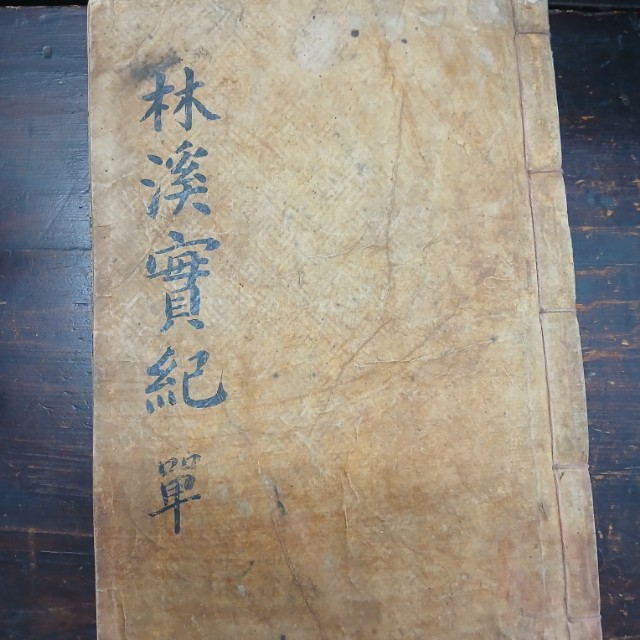 林溪實紀 單